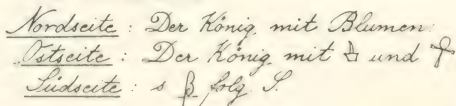 Nordseite: Der König mit Blumen.
Ostseite: Der König mit und
Südseite: s. folg. S.